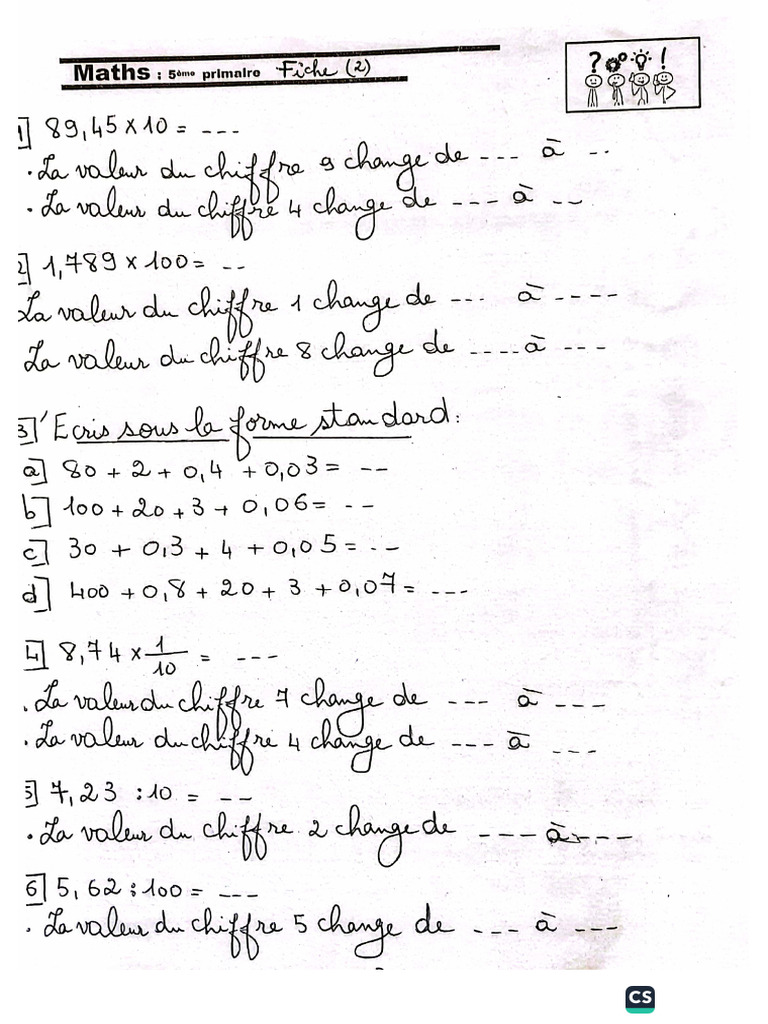 Maths : 5ème primaire Fiche (2)
? !
1] 89,45 x 10 = ---
. La valeur du chiffre 9 change de --- à --
. La valeur du chiffre 4 change de --- à --
2] 1,789 x 100 = --
La valeur du chiffre 1 change de --- à ----
La valeur du chiffre 8 change de ---- à ---
3] Ecris sous la forme standard :
a] 80 + 2 + 0,4 + 0,03 = --
b] 100 + 20 + 3 + 0,06 = --
c] 30 + 0,3 + 4 + 0,05 = --
d] 400 + 0,8 + 20 + 3 + 0,07 = ---
4] 8,74 x 1/10 = ---
. La valeur du chiffre 7 change de --- à ---
. La valeur du chiffre 4 change de --- à ---
5] 7,23 : 10 = --
. La valeur du chiffre 2 change de --- à ---
6] 5,62 : 100 = ---
. La valeur du chiffre 5 change de --- à ---
CS